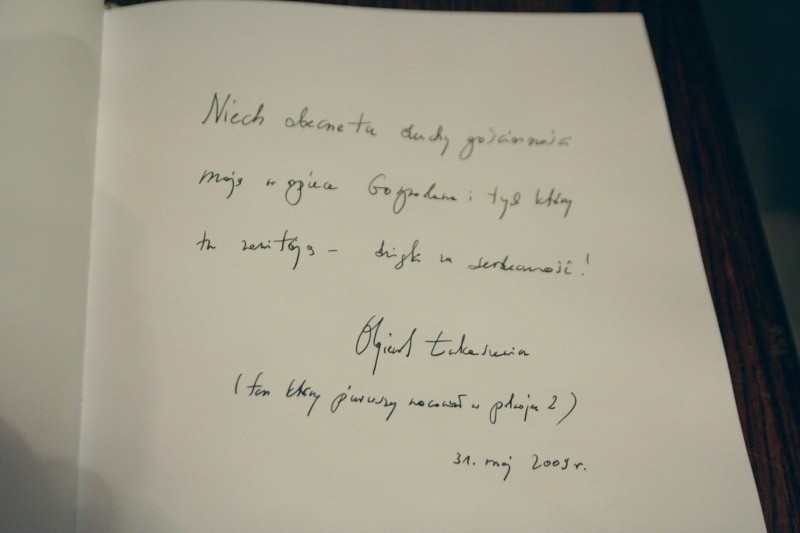 Niech obecne tu duchy gościnności
mają w opiece Gospodarza i tych którzy
tu zawitają - dzięki za serdeczność!
Olgierd Łukaszewicz
(ten który pierwszy nocował w pokoju 2)
31. maj 2009 r.